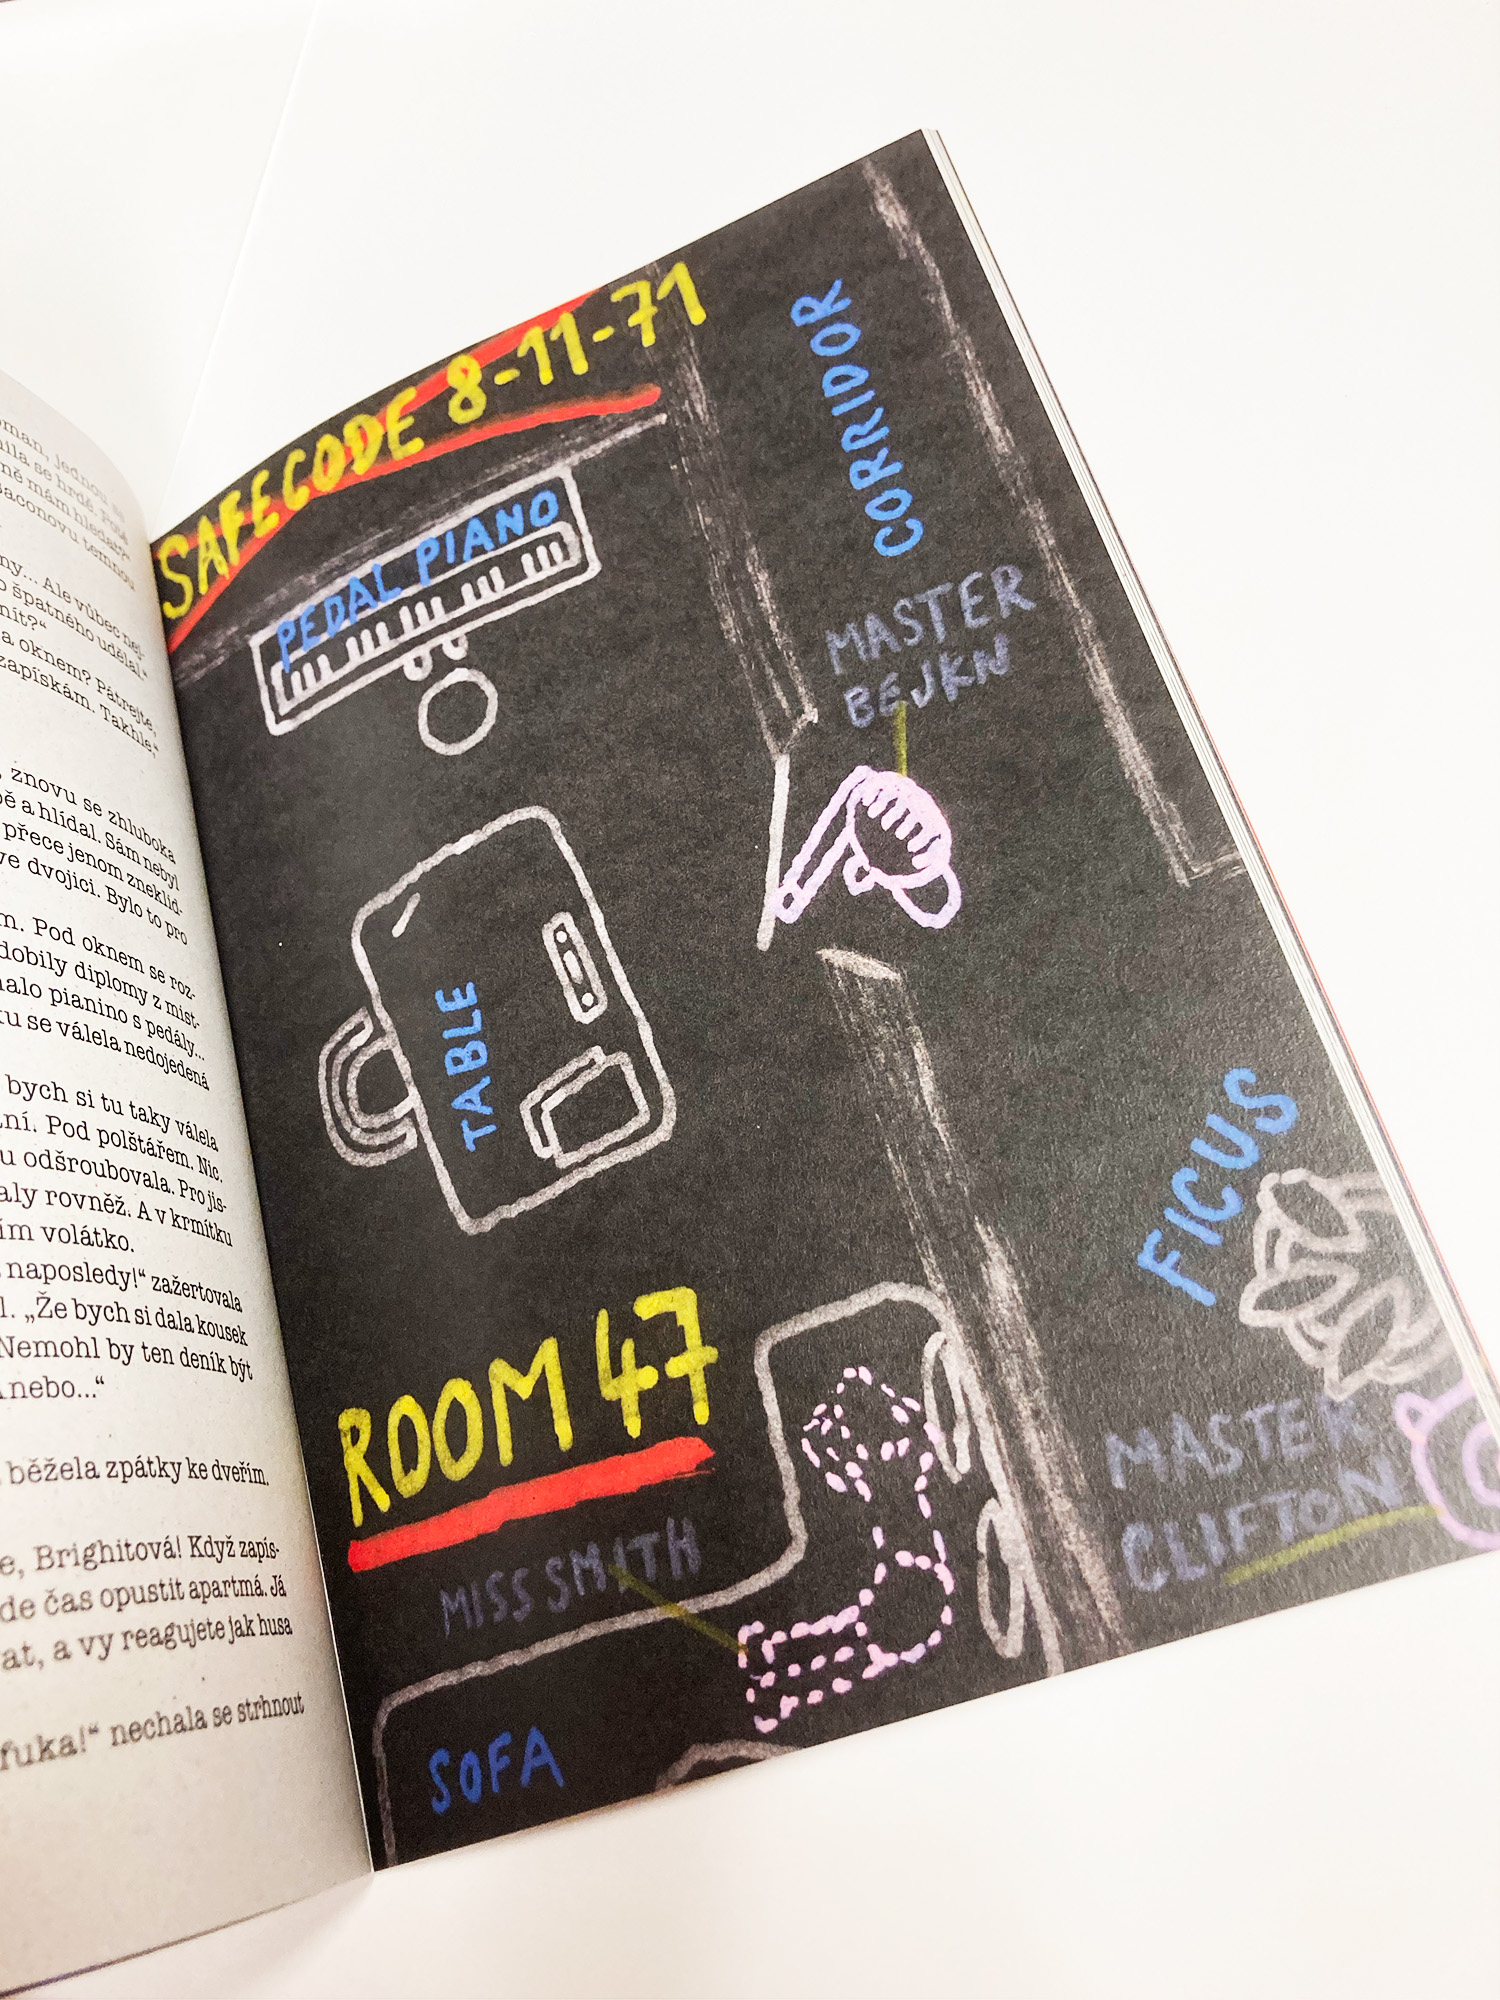 oman, jednou se
nila se hrdě. Poté
ně mám hledat?“
aconovu temnou
ny... Ale vůbec nej-
o špatného udělal.“
nit?“
a oknem? Pátrejte,
zapískám. Takhle,“
, znovu se zhluboka
bě a hlídal. Sám nebyl
přece jenom zneklid-
ve dvojici. Bylo to pro
m. Pod oknem se roz-
dobily diplomy z mist-
nalo pianino s pedály...
ku se válela nedojedená
bych si tu taky válela
ání. Pod polštářem. Nic.
u odšroubovala. Pro jis-
aly rovněž. A v krmítku
ím volátko.
naposledy!“ zažertovala
l. „Že bych si dala kousek
Nemohl by ten deník být
nebo...“
běžela zpátky ke dveřím.
e, Brighitová! Když zapís-
de čas opustit apartmá. Já
at, a vy reagujete jak husa
fuka!“ nechala se strhnout
SAFE CODE 8-11-71
PEDAL PIANO
CORRIDOR
MASTER
BEJKN
TABLE
FICUS
ROOM 47
MASTER
CLIFTON
MISS SMITH
SOFA